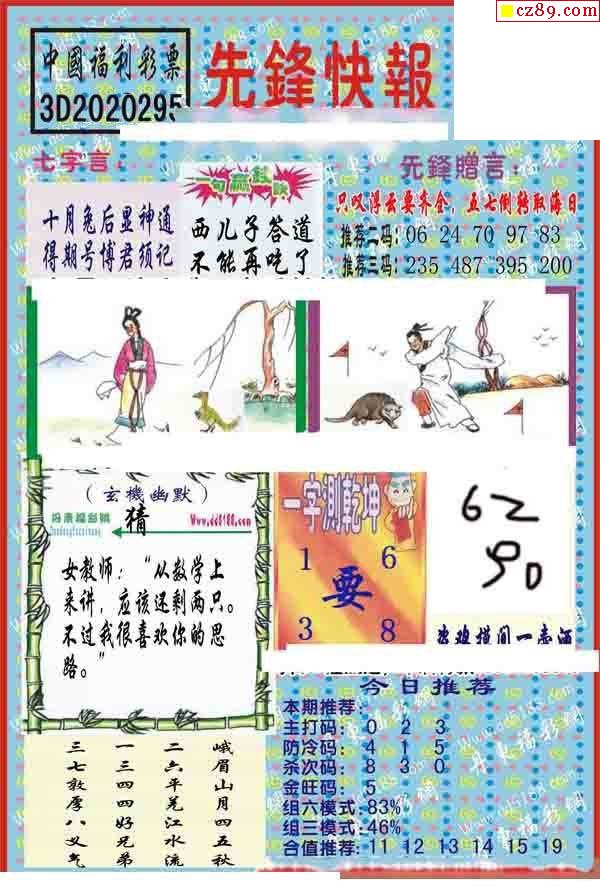 cz89.com
中國福利彩票
3D2020295
先鋒快報
七字言：
十月兔后显神通
得期号博君须记
一句赢錢訣
西儿子答道
不能再吃了
先鋒贈言：
只叹浮云要齐全，五七倒转取海日
推荐二码：06 24 70 97 83
推荐三码：235 487 395 200
（玄機幽默）
猜
Www.dd8188.com
女教师：“从数学上
来讲，应该还剩两只。
不过我很喜欢你的思
路。”
一字測乾坤
1 6
要
3 8
62
90
今日推荐
本期推荐：
主打码：0 2 3
防冷码：4 1 5
杀次码：8 3 0
金旺码：5
组六模式：83%
组三模式：46%
合值推荐：11 12 13 14 15 19
峨眉山月四五秋
二六平羌江水流
一三四四好兄弟
三七敦厚八义气